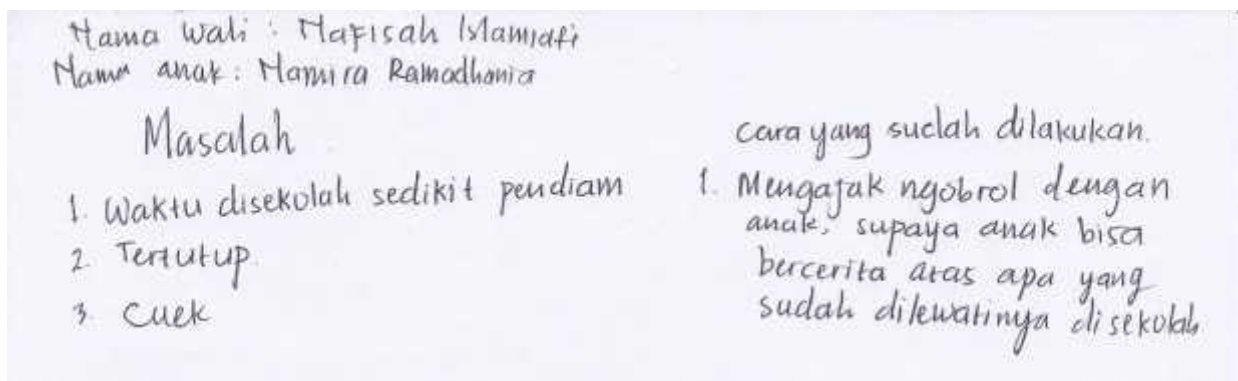 Nama Wali : Nafisah Islamiafi
Nama anak : Namira Ramadhania
Masalah
1. Waktu disekolah sedikit pendiam
2. Tertutup.
3. Cuek
cara yang sudah dilakukan.
1. Mengajak ngobrol dengan
anak, supaya anak bisa
bercerita atas apa yang
sudah dilewatinya disekolah